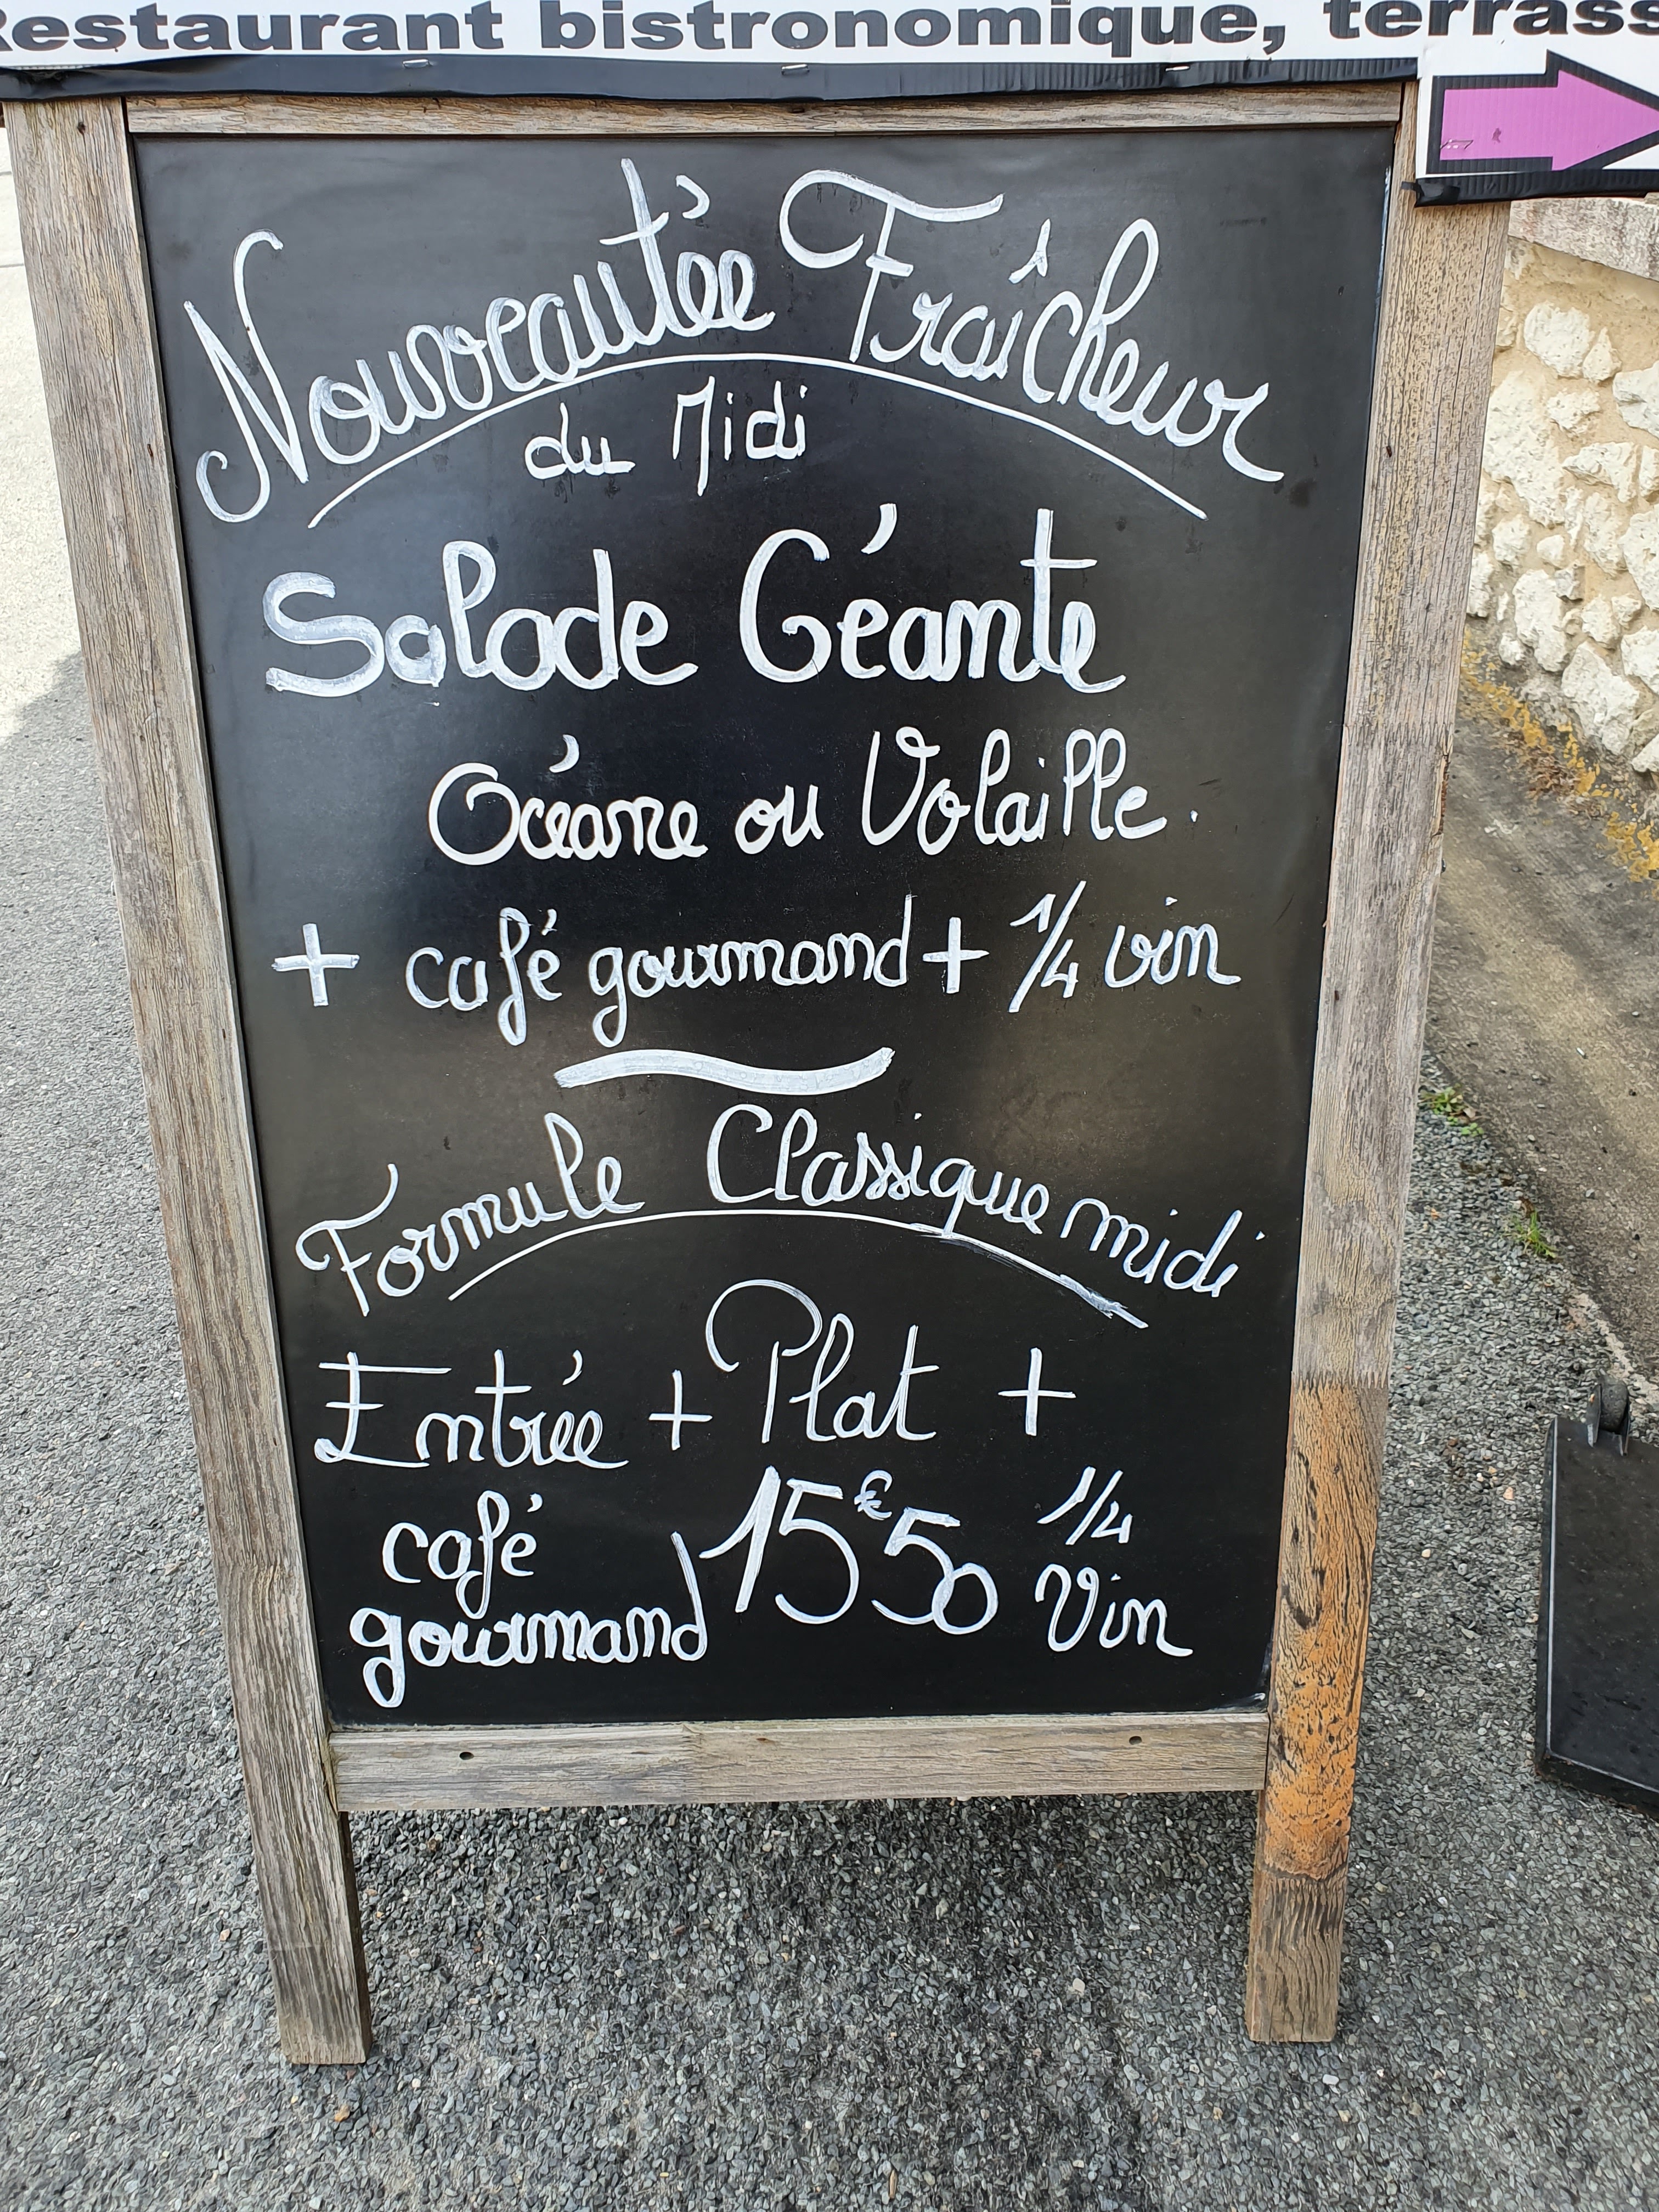 Restaurant bistronomique, terrass
Nouveautée Fraîcheur
du Midi
Salade Géante
Océane ou Volaille.
+ café gourmand + 1/4 vin
Formule Classique midi
Entrée + Plat +
café gourmand 15€50 1/4 Vin